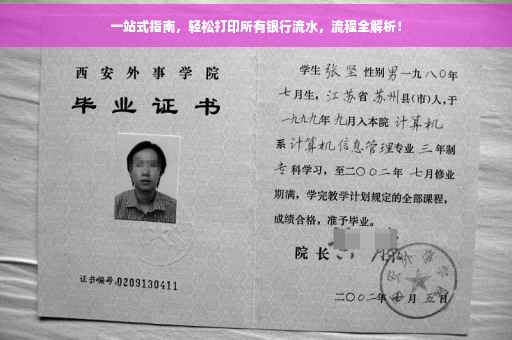 一站式指南，轻松打印所有银行流水，流程全解析！
西安外事学院
毕业证书
证书编号:0209130411
学生 张坚 性别 男 一九八〇年
七月生，江苏省 苏州 县(市)人，于
一九九九年 九月入本院 计算机
系 计算机信息管理 专业 三 年制
专 科学习，至二〇〇二年 七月修业
期满，学完教学计划规定的全部课程，
成绩合格，准予毕业。
院长
二〇〇二年 月 五日